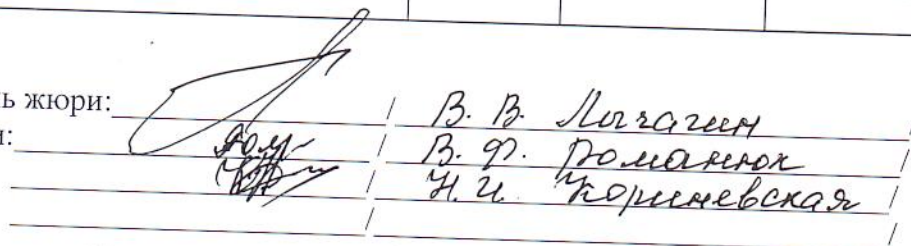 ь жюри: / В. В. Лычагин /
и: / В. Ф. Романюк /
/ Н. И. Кориневская /
/ /